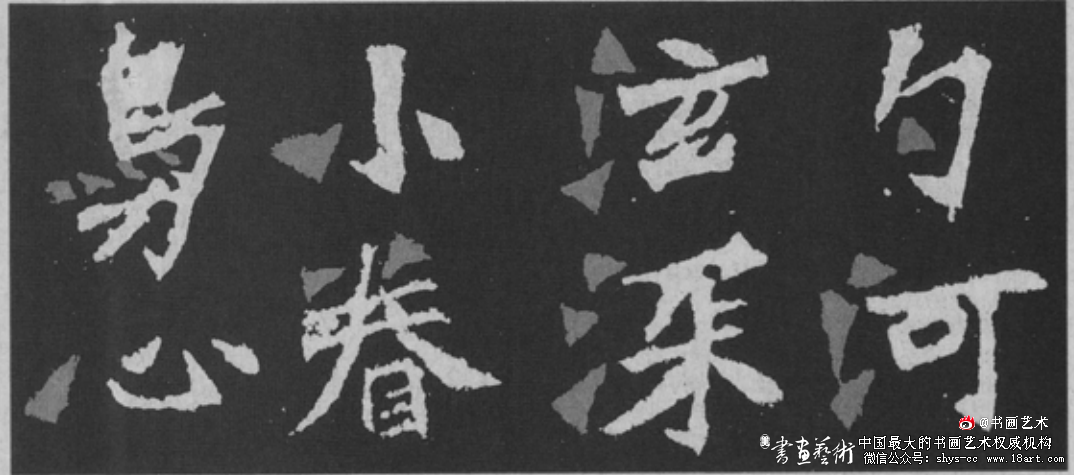 勺河
泫深
小眷
鳥心
@书画艺术
書畫藝術 中国最大的书画艺术权威机构
微信公众号：shys-cc www.18art.com